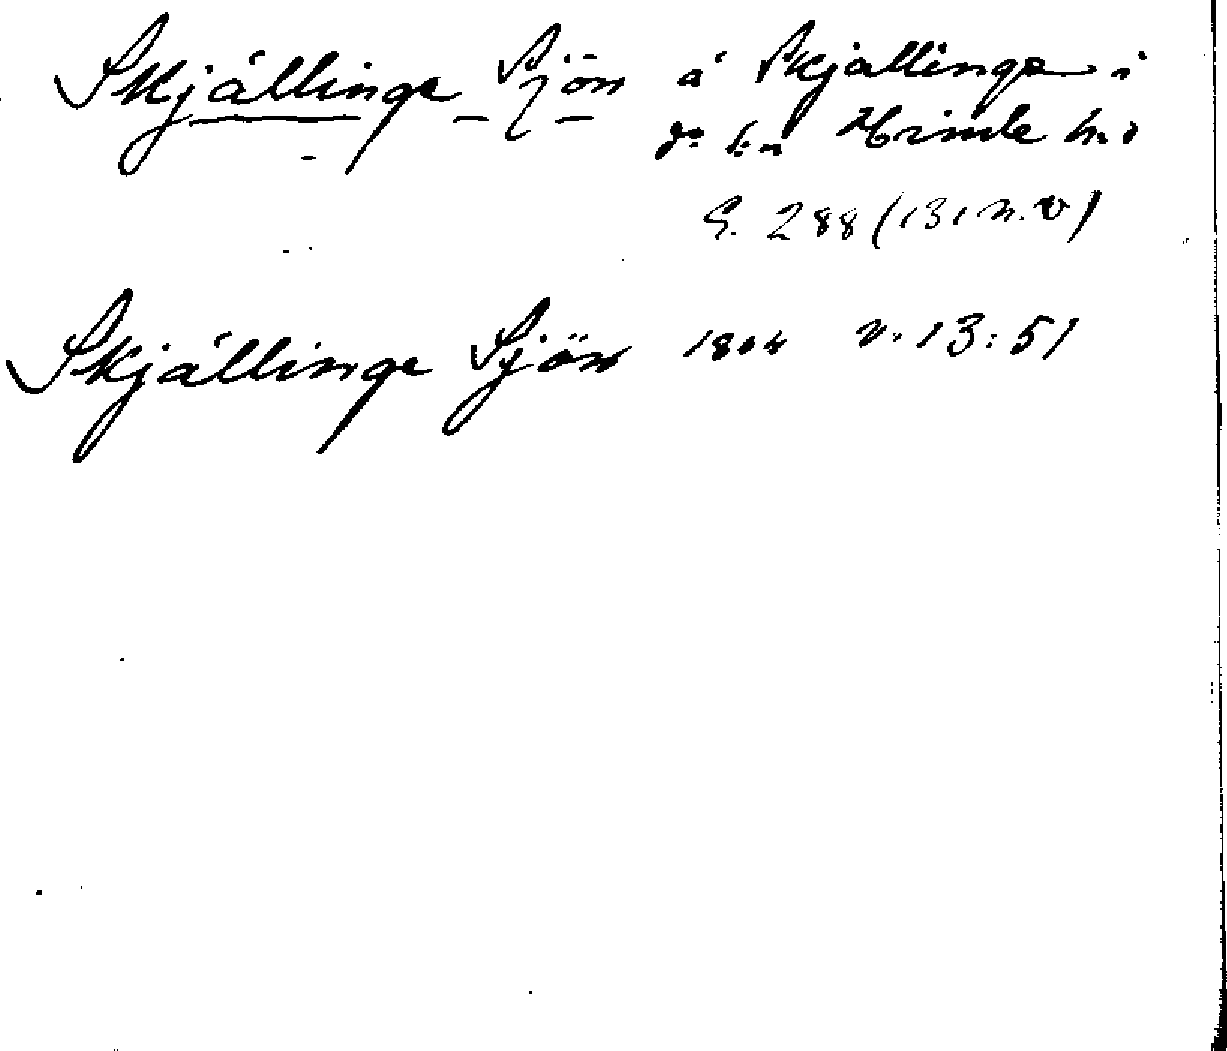 Skjällinge Sjön å Skjällinge i
do sn Himle hd
S. 288 (131 n.v)
Skjällinge Sjön 1804 n. 13:51